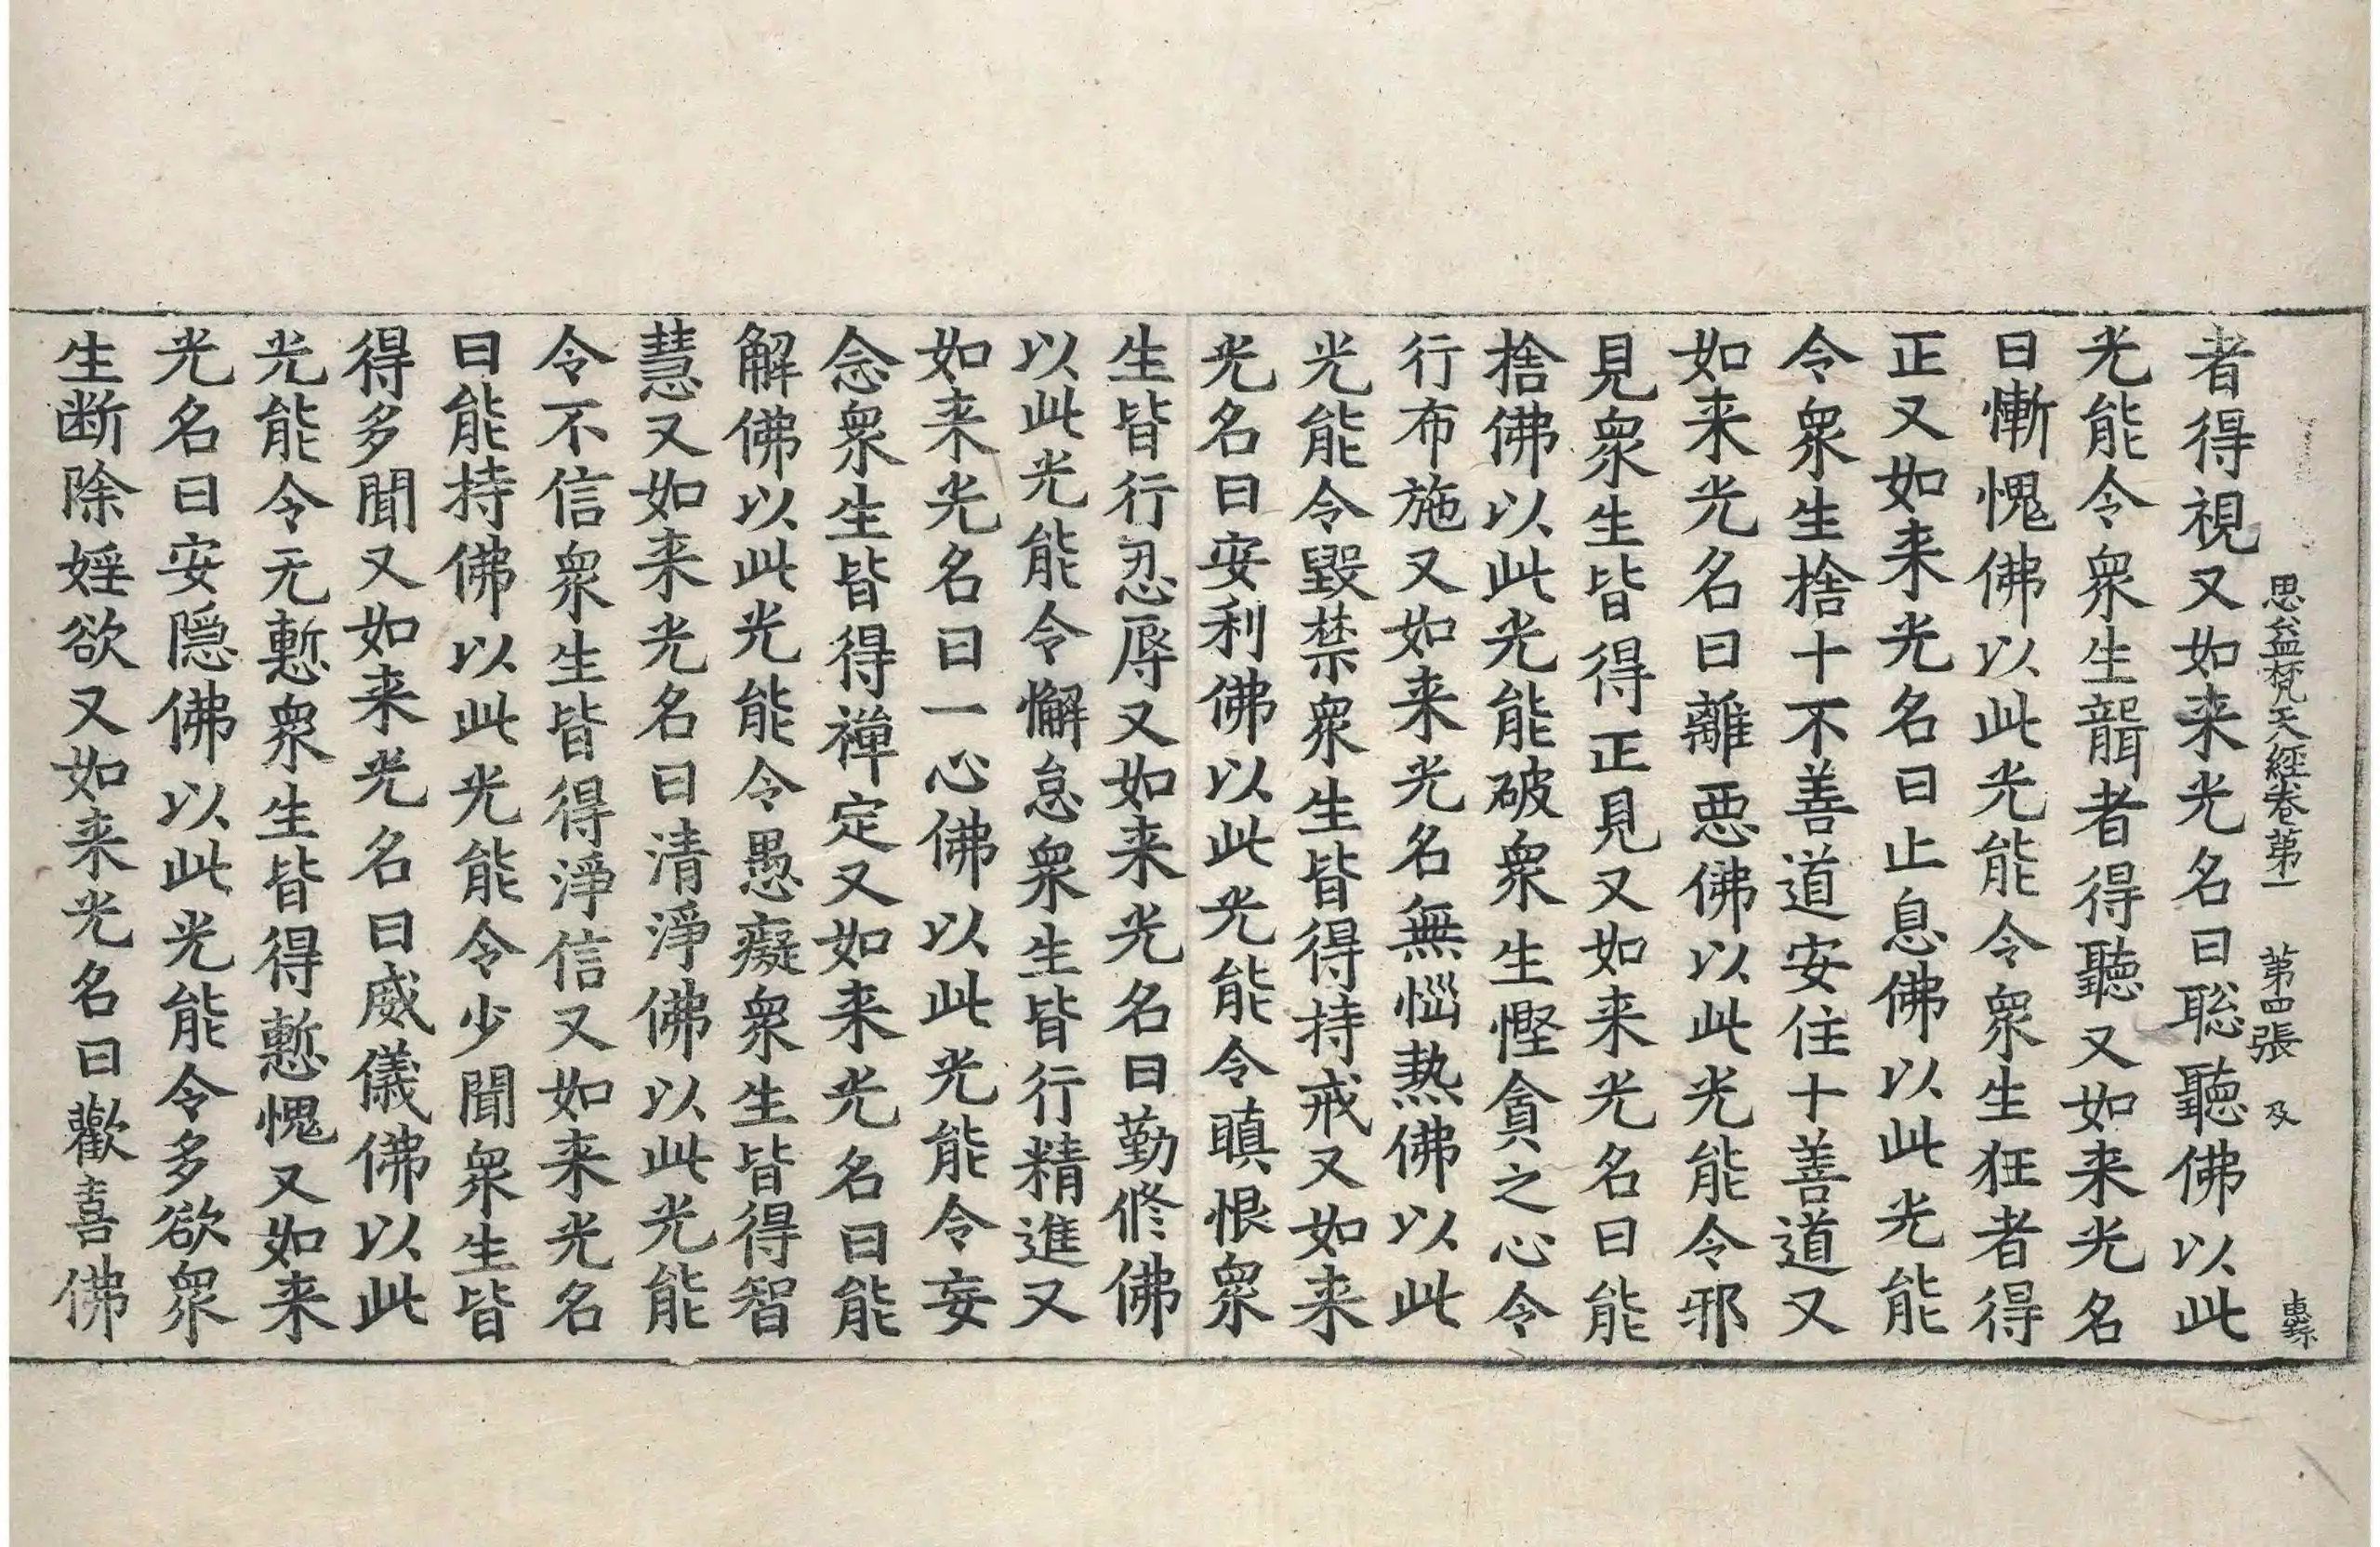 思益梵天經卷第一 第四張 及
者得視又如来光名曰聡聽佛以此
光能令衆生聾者得聽又如来光名
曰慚愧佛以此光能令衆生狂者得
正又如来光名曰止息佛以此光能
令衆生捨十不善道安住十善道又
如来光名曰離惡佛以此光能令邪
見衆生皆得正見又如来光名曰能
捨佛以此光能破衆生慳貪之心令
行布施又如来光名無惱熱佛以此
光能令毀禁衆生皆得持戒又如来
光名曰安利佛以此光能令瞋恨衆
生皆行忍辱又如来光名曰勤修佛
以此光能令懈怠衆生皆行精進又
如来光名曰一心佛以此光能令妄
念衆生皆得禪定又如来光名曰能
解佛以此光能令愚癡衆生皆得智
慧又如来光名曰清淨佛以此光能
令不信衆生皆得淨信又如来光名
曰能持佛以此光能令少聞衆生皆
得多聞又如来光名曰威儀佛以此
光能令无慙衆生皆得慙愧又如来
光名曰安隠佛以此光能令多欲衆
生断除婬欲又如来光名曰歡喜佛